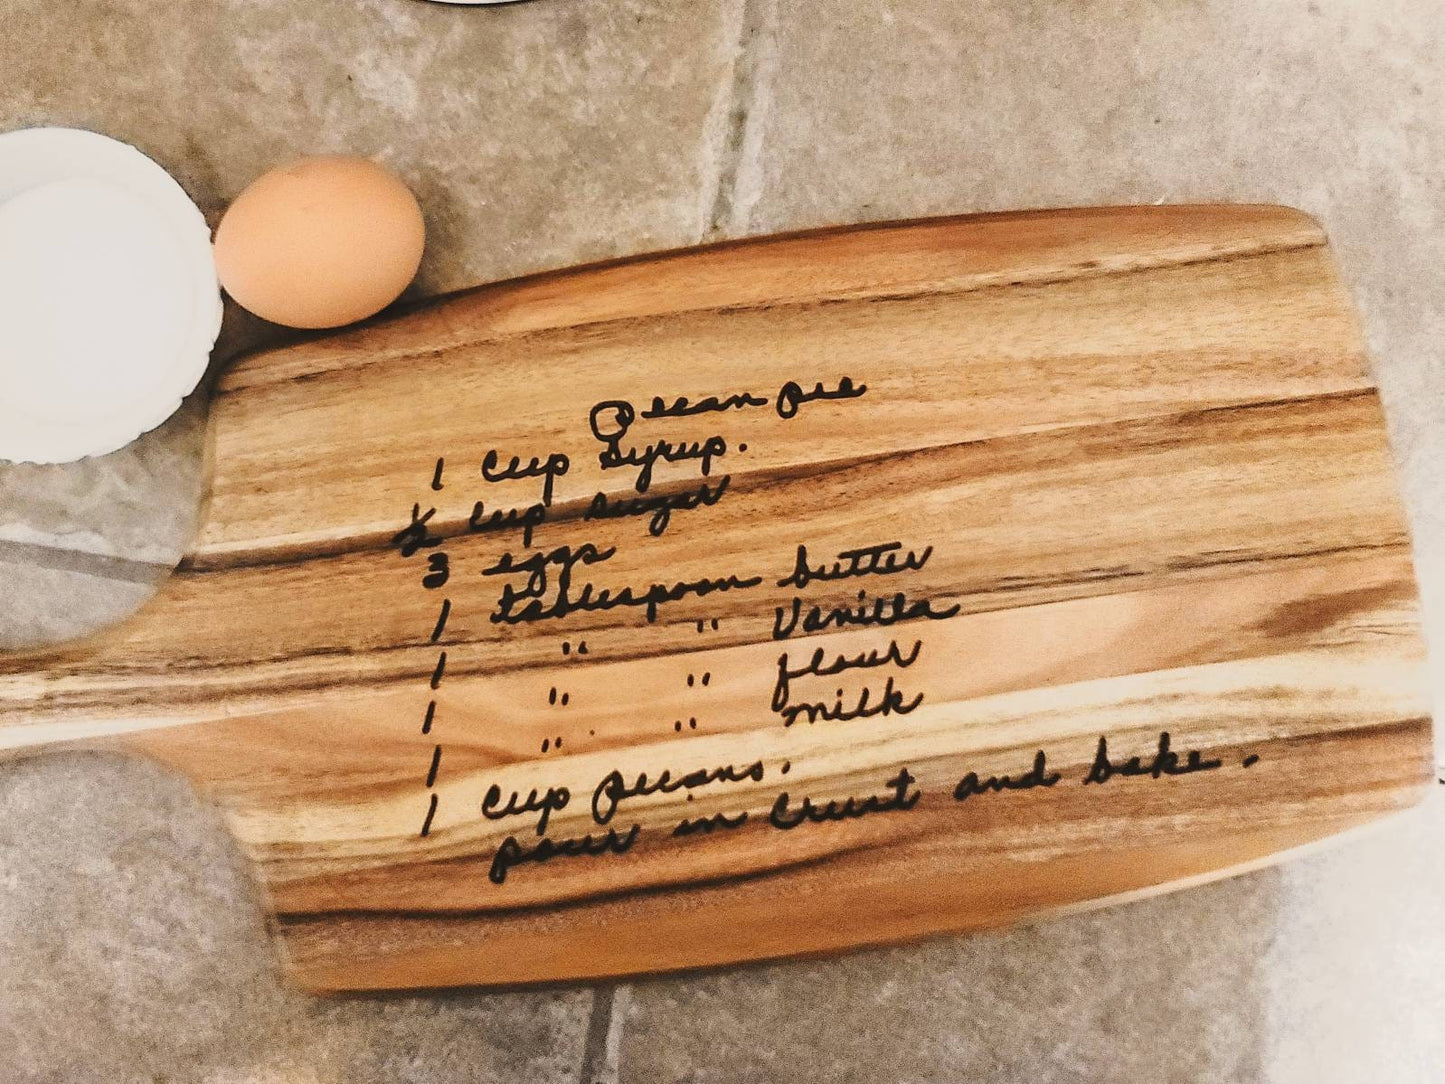 Pecan pie
1 Cup Syrup.
½ Cup sugar
3 eggs
1 tablespoon butter
1 " " Vanilla
1 " " flour
1 " " milk
1 Cup pecans.
pour in Crust and bake.